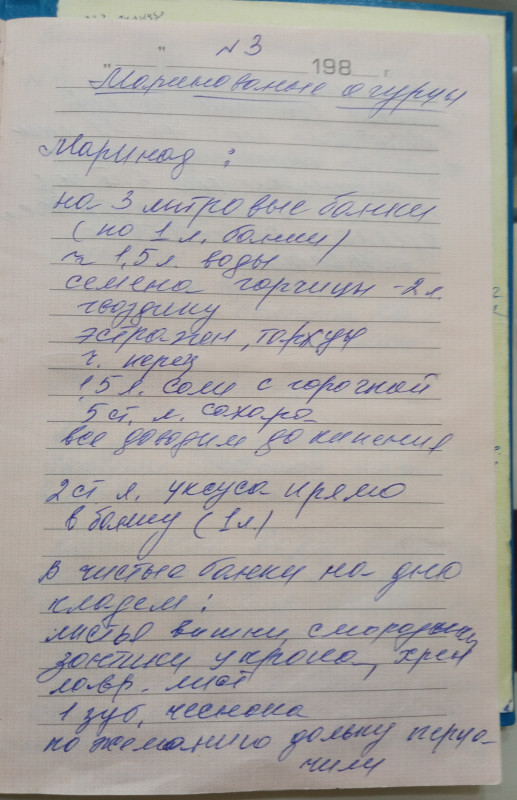 N 3
" " 198 г.
Маринованые огурцы
Маринад:
на 3 литровые банки
(по 1 л. банки)
1,5 л. воды
семена горчицы - 2 л.
гвоздику
эстрагон, тархун
ч. перец
1,5 л. соли с горочкой
5 ст. л. сахара
все доводим до кипения
2 ст л. уксуса прямо
в банку (1 л)
В чистые банки на дно
кладем:
листья вишни, смородины,
зонтики укропа, хрен
лавр. лист
1 зуб. чеснока
по желанию дольку перца-
чили